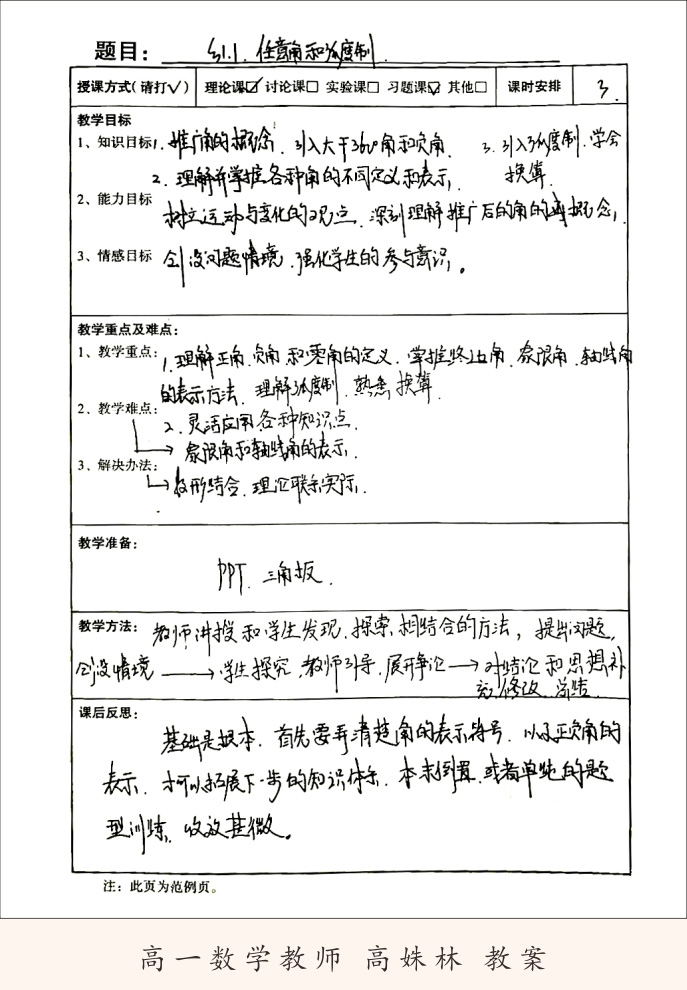 题目：§1.1. 任意角和弧度制.
授课方式(请打√) 理论课☑ 讨论课□ 实验课□ 习题课☑ 其他□ 课时安排 3.
教学目标
1、知识目标 1. 推广角的概念、引入大于360°角和负角. 3. 引入弧度制.学会
2. 理解并掌握各种角的不同定义和表示. 换算.
2、能力目标 树立运动与变化的观点.深刻理解推广后的角的概念.
3、情感目标 创设问题情境.强化学生的参与意识。
教学重点及难点：
1、教学重点：1.理解正角.负角和零角的定义.掌握终边角.象限角.轴线角
的表示方法.理解弧度制.熟悉换算.
2、教学难点：2.灵活应用各种知识点.
→象限角和轴线角的表示.
3、解决办法：
→数形结合.理论联系实际.
教学准备：
PPT. 三角板.
教学方法：教师讲授和学生发现.探索相结合的方法，提出问题.
创设情境→学生探究.教师引导.展开争论→对结论和思想补
充.修改.总结.
课后反思：
基础是根本.首先要弄清楚角的表示符号.以及正负角的
表示.才可以拓展下一步的知识体系.本末倒置.或者单纯的题
型训练.收效甚微。
注：此页为范例页。
高一数学教师 高姝林 教案